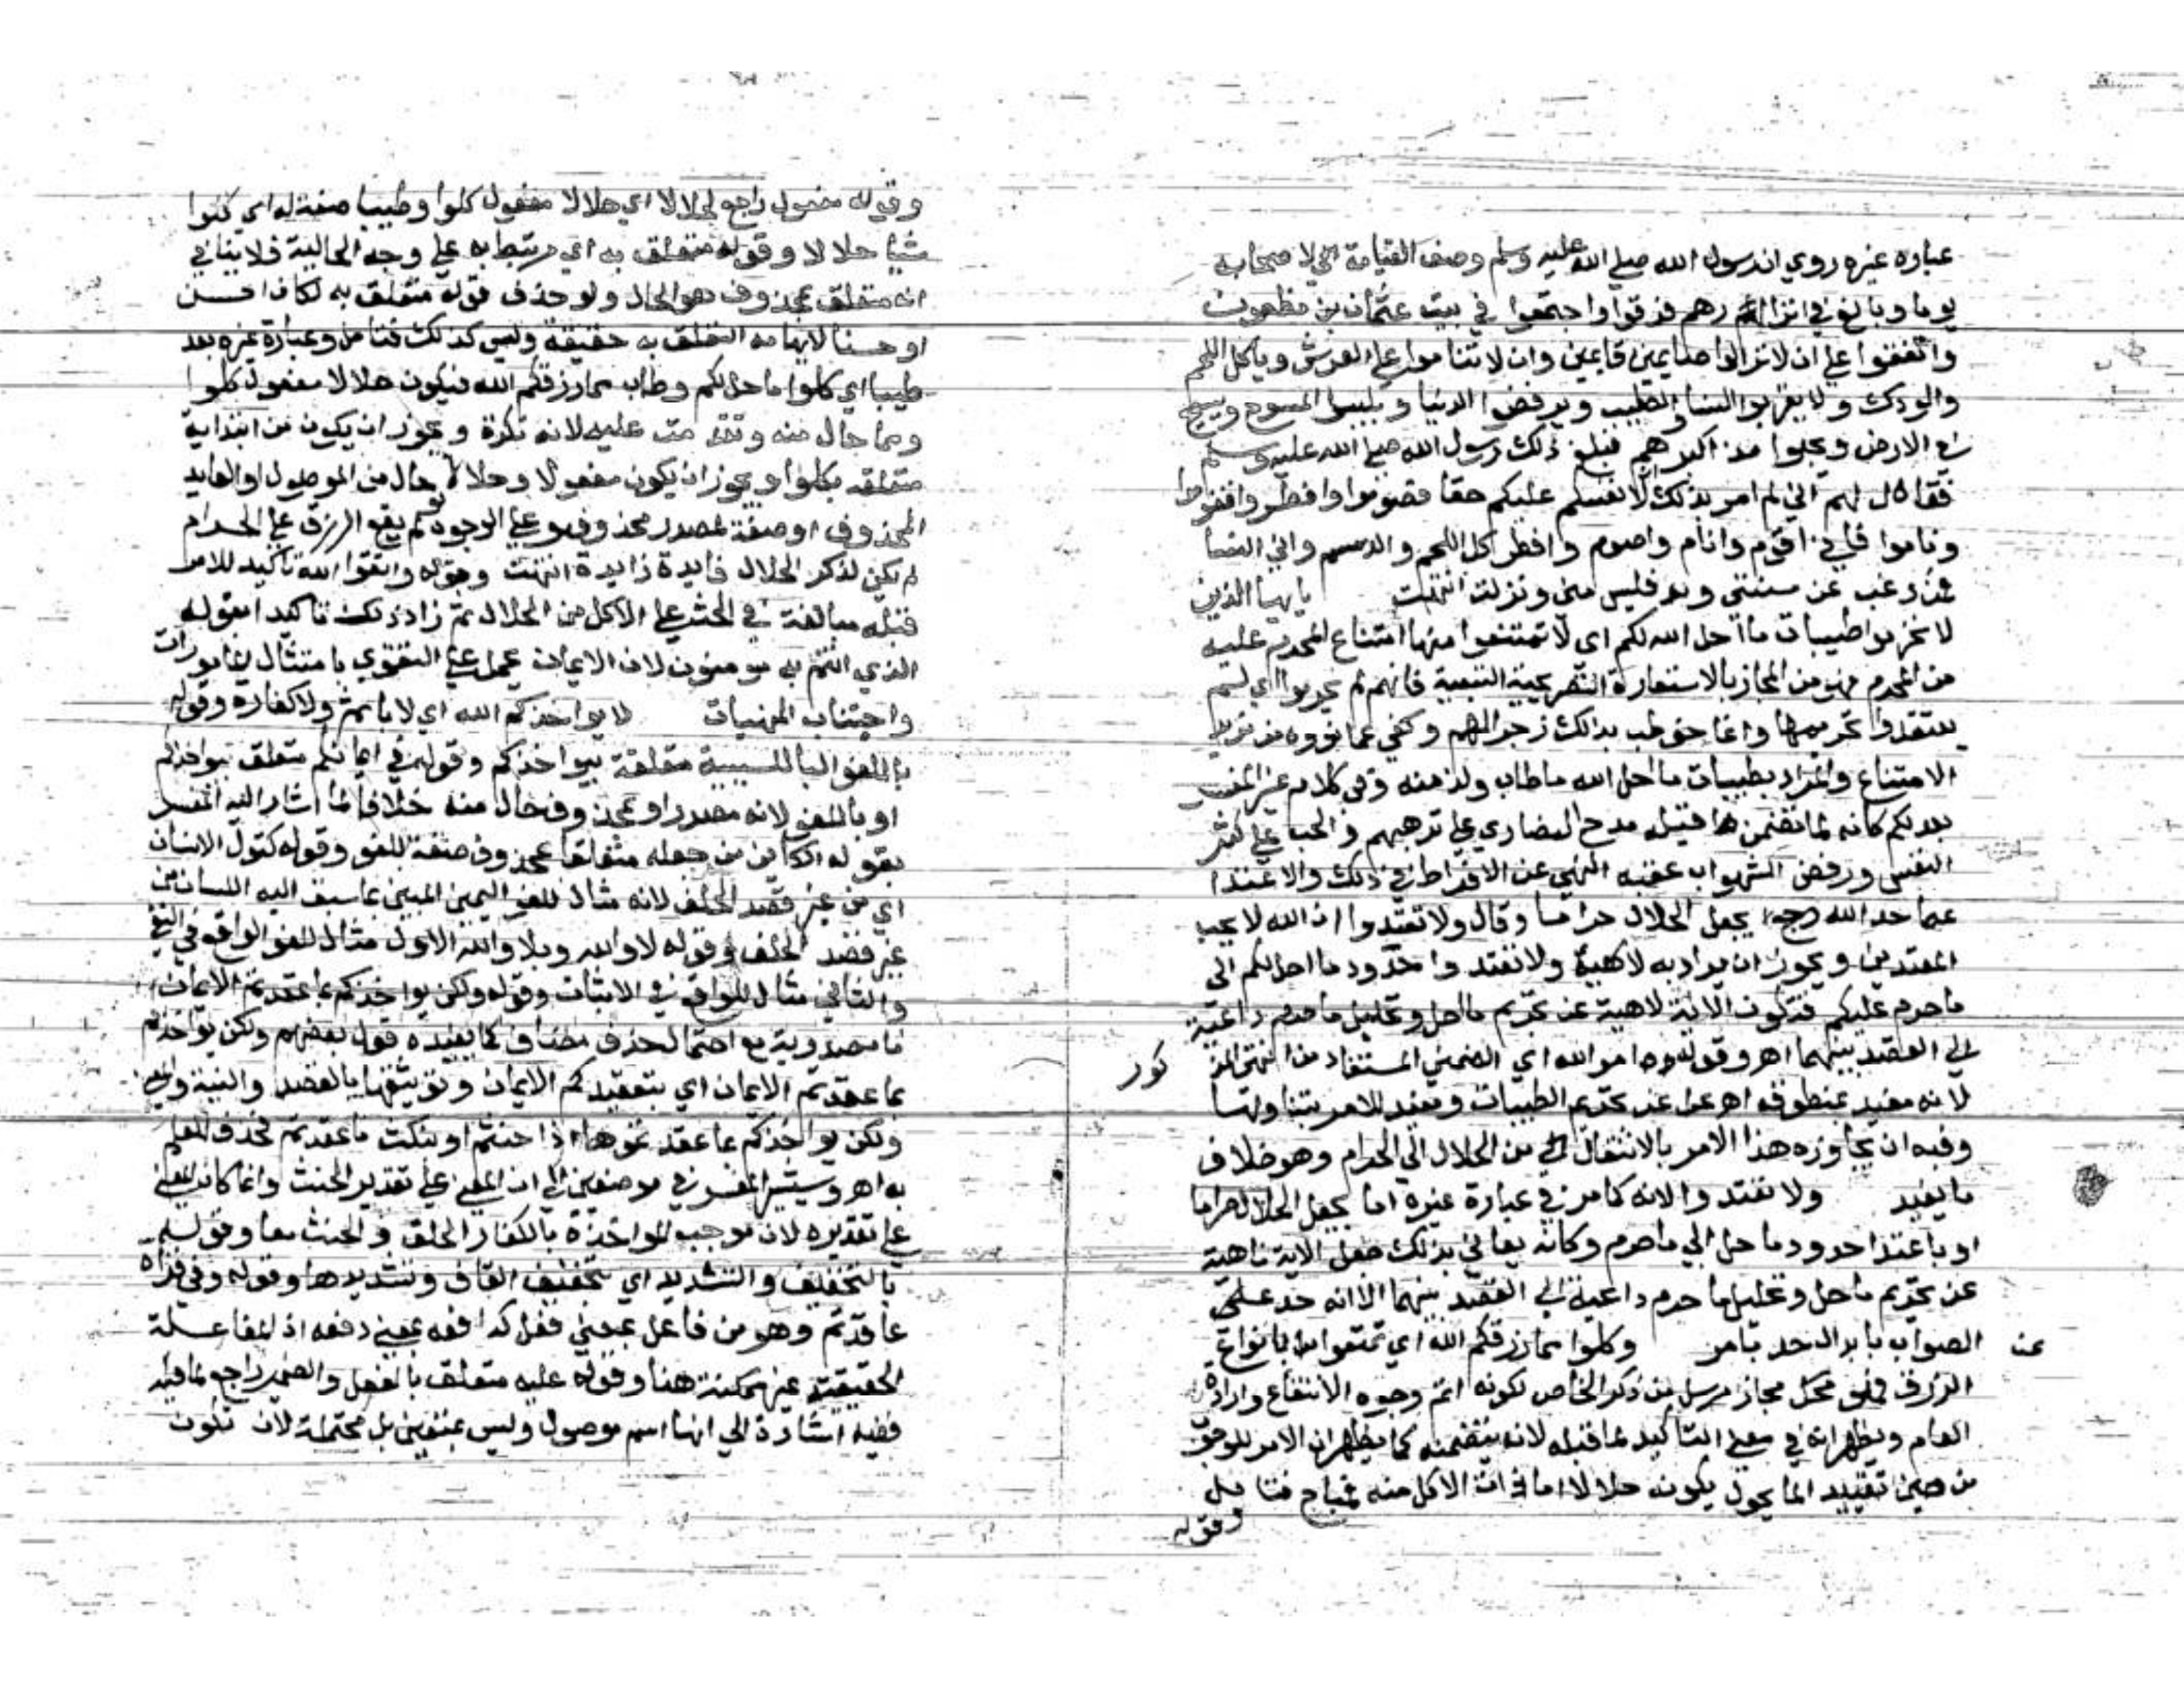 عبارة غيره روي ان رسول الله صلي الله عليه وسلم وصف القيامة لاصحابه
يوما وبالغ في انذارهم فرقوا واجتمعوا في بيت عثمان بن مظعون
واتفقوا علي ان لا يزالوا صايمين قايمين وان لا يناموا علي الفرش وياكلوا اللحم
والودك ولا يقربوا النسا والطيب ويرفضوا الدنيا ويلبسوا المسوح ويسيحو
في الارض ويجبوا مذاكيرهم فبلغ ذلك رسول الله صلي الله عليه وسلم
فقال لهم اني لم اومر بذلك ان لانفسكم عليكم حقا فصوموا وافطروا وقوموا
وناموا فاني اقوم وانام واصوم وافطر واكل اللحم والدسم واتي النسا
فمن رغب عن سنتي فليس مني ونزلت انتهت يا ايها الذين
لا تحرموا طيبات ما احل الله لكم اي لا تمتنعوا منها امتناع المحرم عليه
من المحرم فهو من المجاز بالاستعارة التصريحية التبعية فانهم لم يحرموا اي لم
يعتقدوا تحريمها وانما خوطب بذلك زجرا لهم وكفي عما نووه من
الامتناع والمراد بطيبات ما احل الله ما طاب ولذ منه وفي كلام غير المفسر
بعد لكم كانه لما تضمن ما قبله مدح النصاري علي ترهبهم والحث علي كسر
النفس ورفض الشهوات عقبه النهي عن الافراط في ذلك والاعتدا
عما حد الله بجعل الحلال حراما وقال ولا تعتدوا ان الله لا يحب
المعتدين ويجوز ان يراد به لاهية ولا تعتدوا حدود ما احل لكم الي
ما حرم عليكم فتكون الاية لاهية عن تحريم ما احل وتحليل ما حرم داعية
الي القصد بينهما اهـ وقوله امر الله اي الضمني المستفاد من النهي المذ
كور
لانه مفيد بمنطوقه عن تحريم الطيبات ويفيد للامر بتناولها
وفيه ان تجاوزه هذا الامر بالانتقال من الحلال الي الحرام وهو خلاف
ما يفيد ولا تعتدوا لانه كما مر في عبارة غيره اما بجعل الحلال حراما
او باعتدا حدود ما حل الي ما حرم وكانه يعاني بذلك جعل الاية ناهية
عن تحريم ما حل وتحليل ما حرم داعية الي القصد بينهما الا انه حد علي
عن الصواب بابدال حد بامر وكلوا مما رزقكم الله اي تمتعوا بانواع
الرزق فهو مجاز مرسل من ذكر الخاص لكونه اتم وجوه الانتفاع وارادة
العام ويظهر انه في معني التاكيد لما قبله لانه يتضمنه كما يظهر ان الامر للوجوب
من حيث تقييد الماكول بكونه حلالا اما ان الاكل منه فمباح فتامل
وقوله
وقوله مفعول راجع لحلالا اي حلالا مفعول كلوا وطيبا صفة له اي كلوا
شيا حلالا وقوله متعلق به اي مرتبط به علي وجه الحالية فلا ينافي
انه متعلق بمحذوف هو الحال ولو حذف قوله متعلق به لكان احسن
او حسنا لايهامه التعلق به حقيقة وليس كذلك فتامل وعبارة غيره بعد
طيبا اي كلوا ما حل لكم وطاب مما رزقكم الله فيكون حلالا مفعول كلوا
ومما حال منه وتقدمت عليه لانه نكرة ويجوز ان يكون من ابتدايية
متعلقة بكلوا ويجوز ان يكون مفعولا وحلالا حال من الموصول او العايد
المحذوف او صفة لمصدر محذوف وعلي الوجوه لو لم يقع الرزق علي الحرام
لم يكن لذكر الحلال فايدة زايدة انتهت وقوله واتقوا الله تاكيد للامر
قبله مبالغة في الحث علي الاكل من الحلال ثم زاد ذلك تاكيدا بقوله
الذي انتم به مومنون لان الايمان يحمل علي التقوي بامتثال المامورات
واجتناب المنهيات لا يواخذكم الله اي لا باثم ولا كفارة وقوله
باللغو البا للسببية متعلقة بيواخذكم وقوله في ايمانكم متعلق بيواخذكم
او باللغو لانه مصدر او بمحذوف حال منه خلافا لما اشار اليه المفسر
بقوله الكاين من جعله متعلقا بمحذوف صفة للغو وقوله كقول الانسان
اي من غير قصد الحلف لانه مثال للغو اليمين المبين بما سبق اليه اللسان من
غير قصد الحلف وقوله لا والله وبلا والله الاول مثال للغو الواقع في النفي
والثاني مثال للواقع في الاثبات وقوله ولكن يواخذكم بما عقدتم الايمان
ما مصدرية مع احتمال حذف مضاف كما يفيده قول بعضهم ولكن يواخذكم
بما عقدتم الايمان اي بتعقيدكم الايمان وتوثيقها بالقصد والنية
ولكن يواخذكم بما عقدتموها اذا حنثتم او بنكث ما عقدتم فحذف للعلم
به اهـ وسيشير المفسر في موضعين الي ان المعني علي تقدير الحنث وانما كان المعني
علي تقديره لان موجب المواخذة بالكفارة الحلف والحنث معا وقوله
بالتخفيف والتشديد اي بتخفيف القاف وتشديدها وقوله وفي قراة
عاقدتم وهو من فاعل بمعني فعل كدافعه بمعني دفعه اذ المفاعلة
الحقيقية غير ممكنة هنا وقوله عليه متعلق بالفعل والضمير راجع لما قبله
ففيه اشارة الي انها اسم موصول وليس بمتعين بل محتملة لان تكون